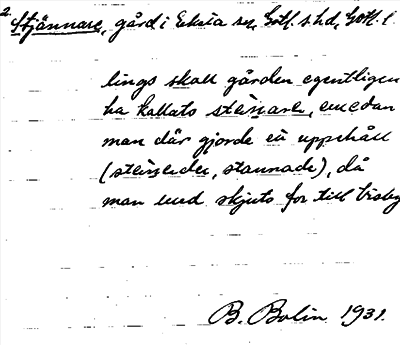 2.
Stjännare, gård i Eksta sn, Gotl. s. hd, Gotl. l.
lings skall gården egentligen
ha kallats stäinare, emedan
man där gjorde en uppehåll
(stäinde, stannade), då
man med skjuts for till Visby
B. Bolin 1931.